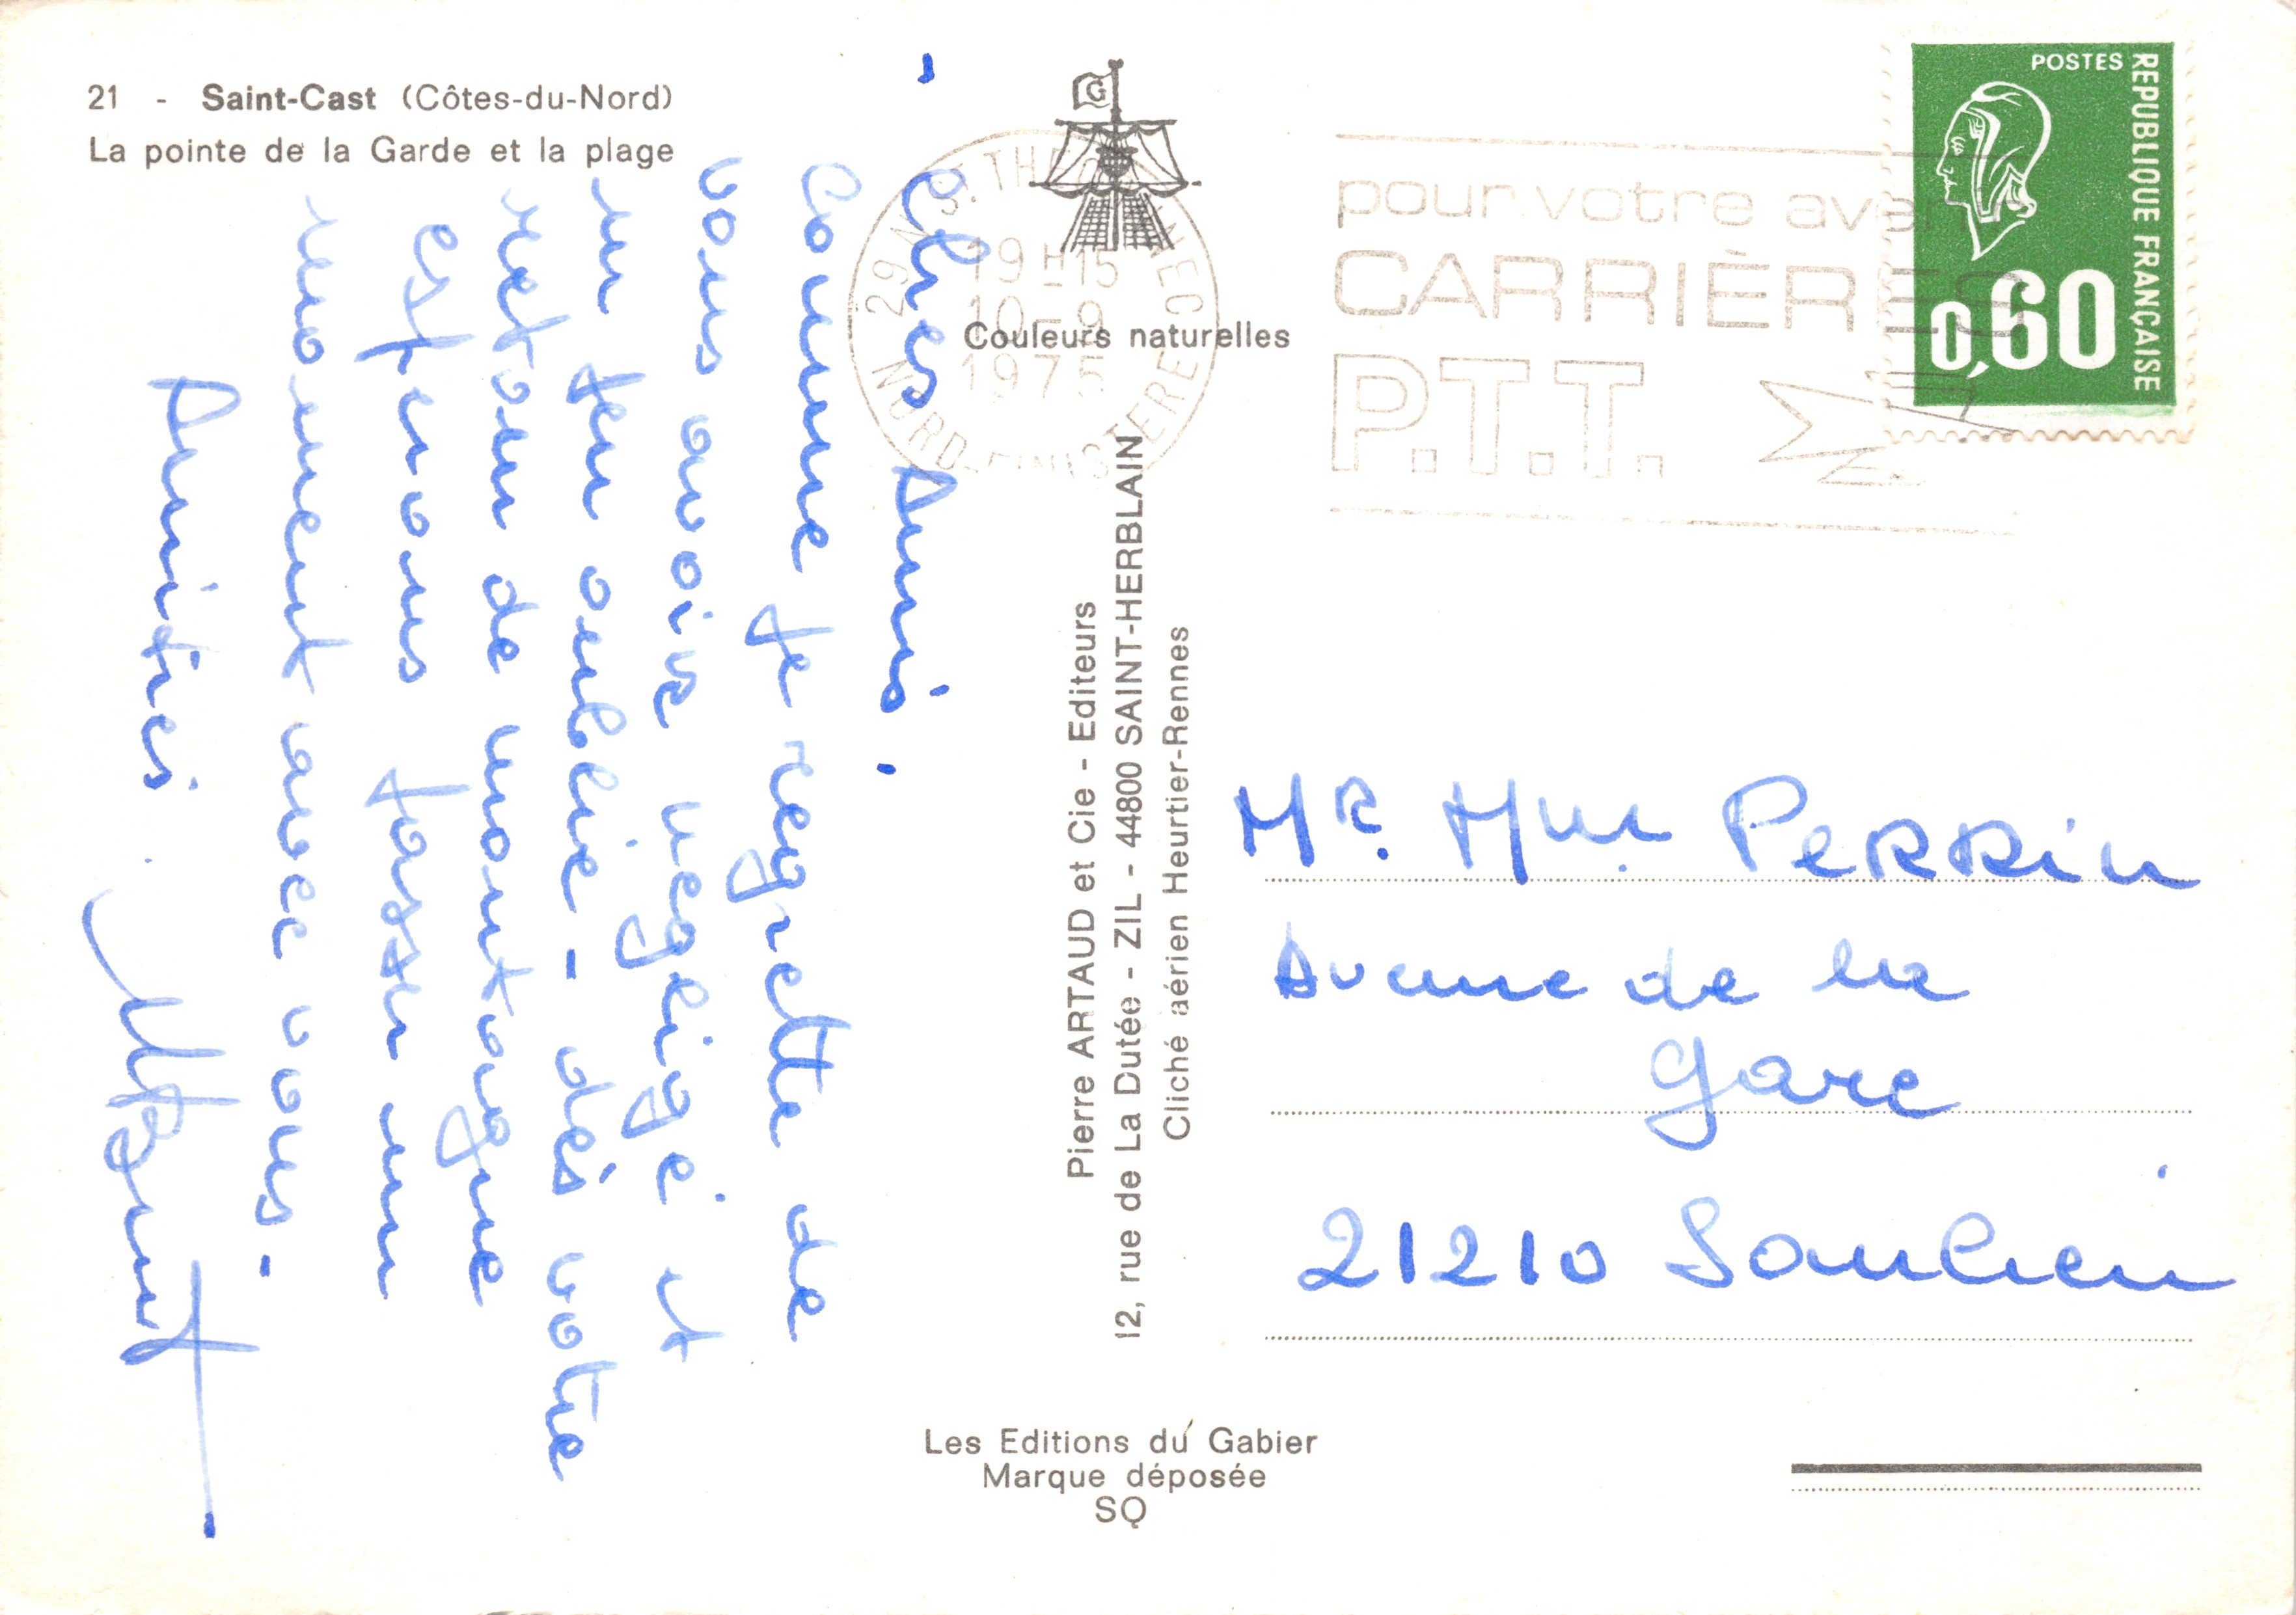 21 - Saint-Cast (Côtes-du-Nord)
La pointe de la Garde et la plage
Chers Amis.
Comme je regrette de
vous avoir négligé et
un peu oublié - dès votre
retour de montagne
expèr vous passer un
moment avec vous.-
Amitiés.
29 N ST. THEGONNEC
19H15
10-9
1975
NORD-FINISTERE
Couleurs naturelles
Pierre ARTAUD et Cie - Editeurs
12, rue de La Dutée - ZIL - 44800 SAINT-HERBLAIN
Cliché aérien Heurtier-Rennes
Les Editions du Gabier
Marque déposée
SQ
pour votre avenir
CARRIÈRES
P.T.T.
POSTES
REPUBLIQUE FRANÇAISE
0,60
Mr. Mme PERRIN
Avenue de la
Gare
21210 Saulieu